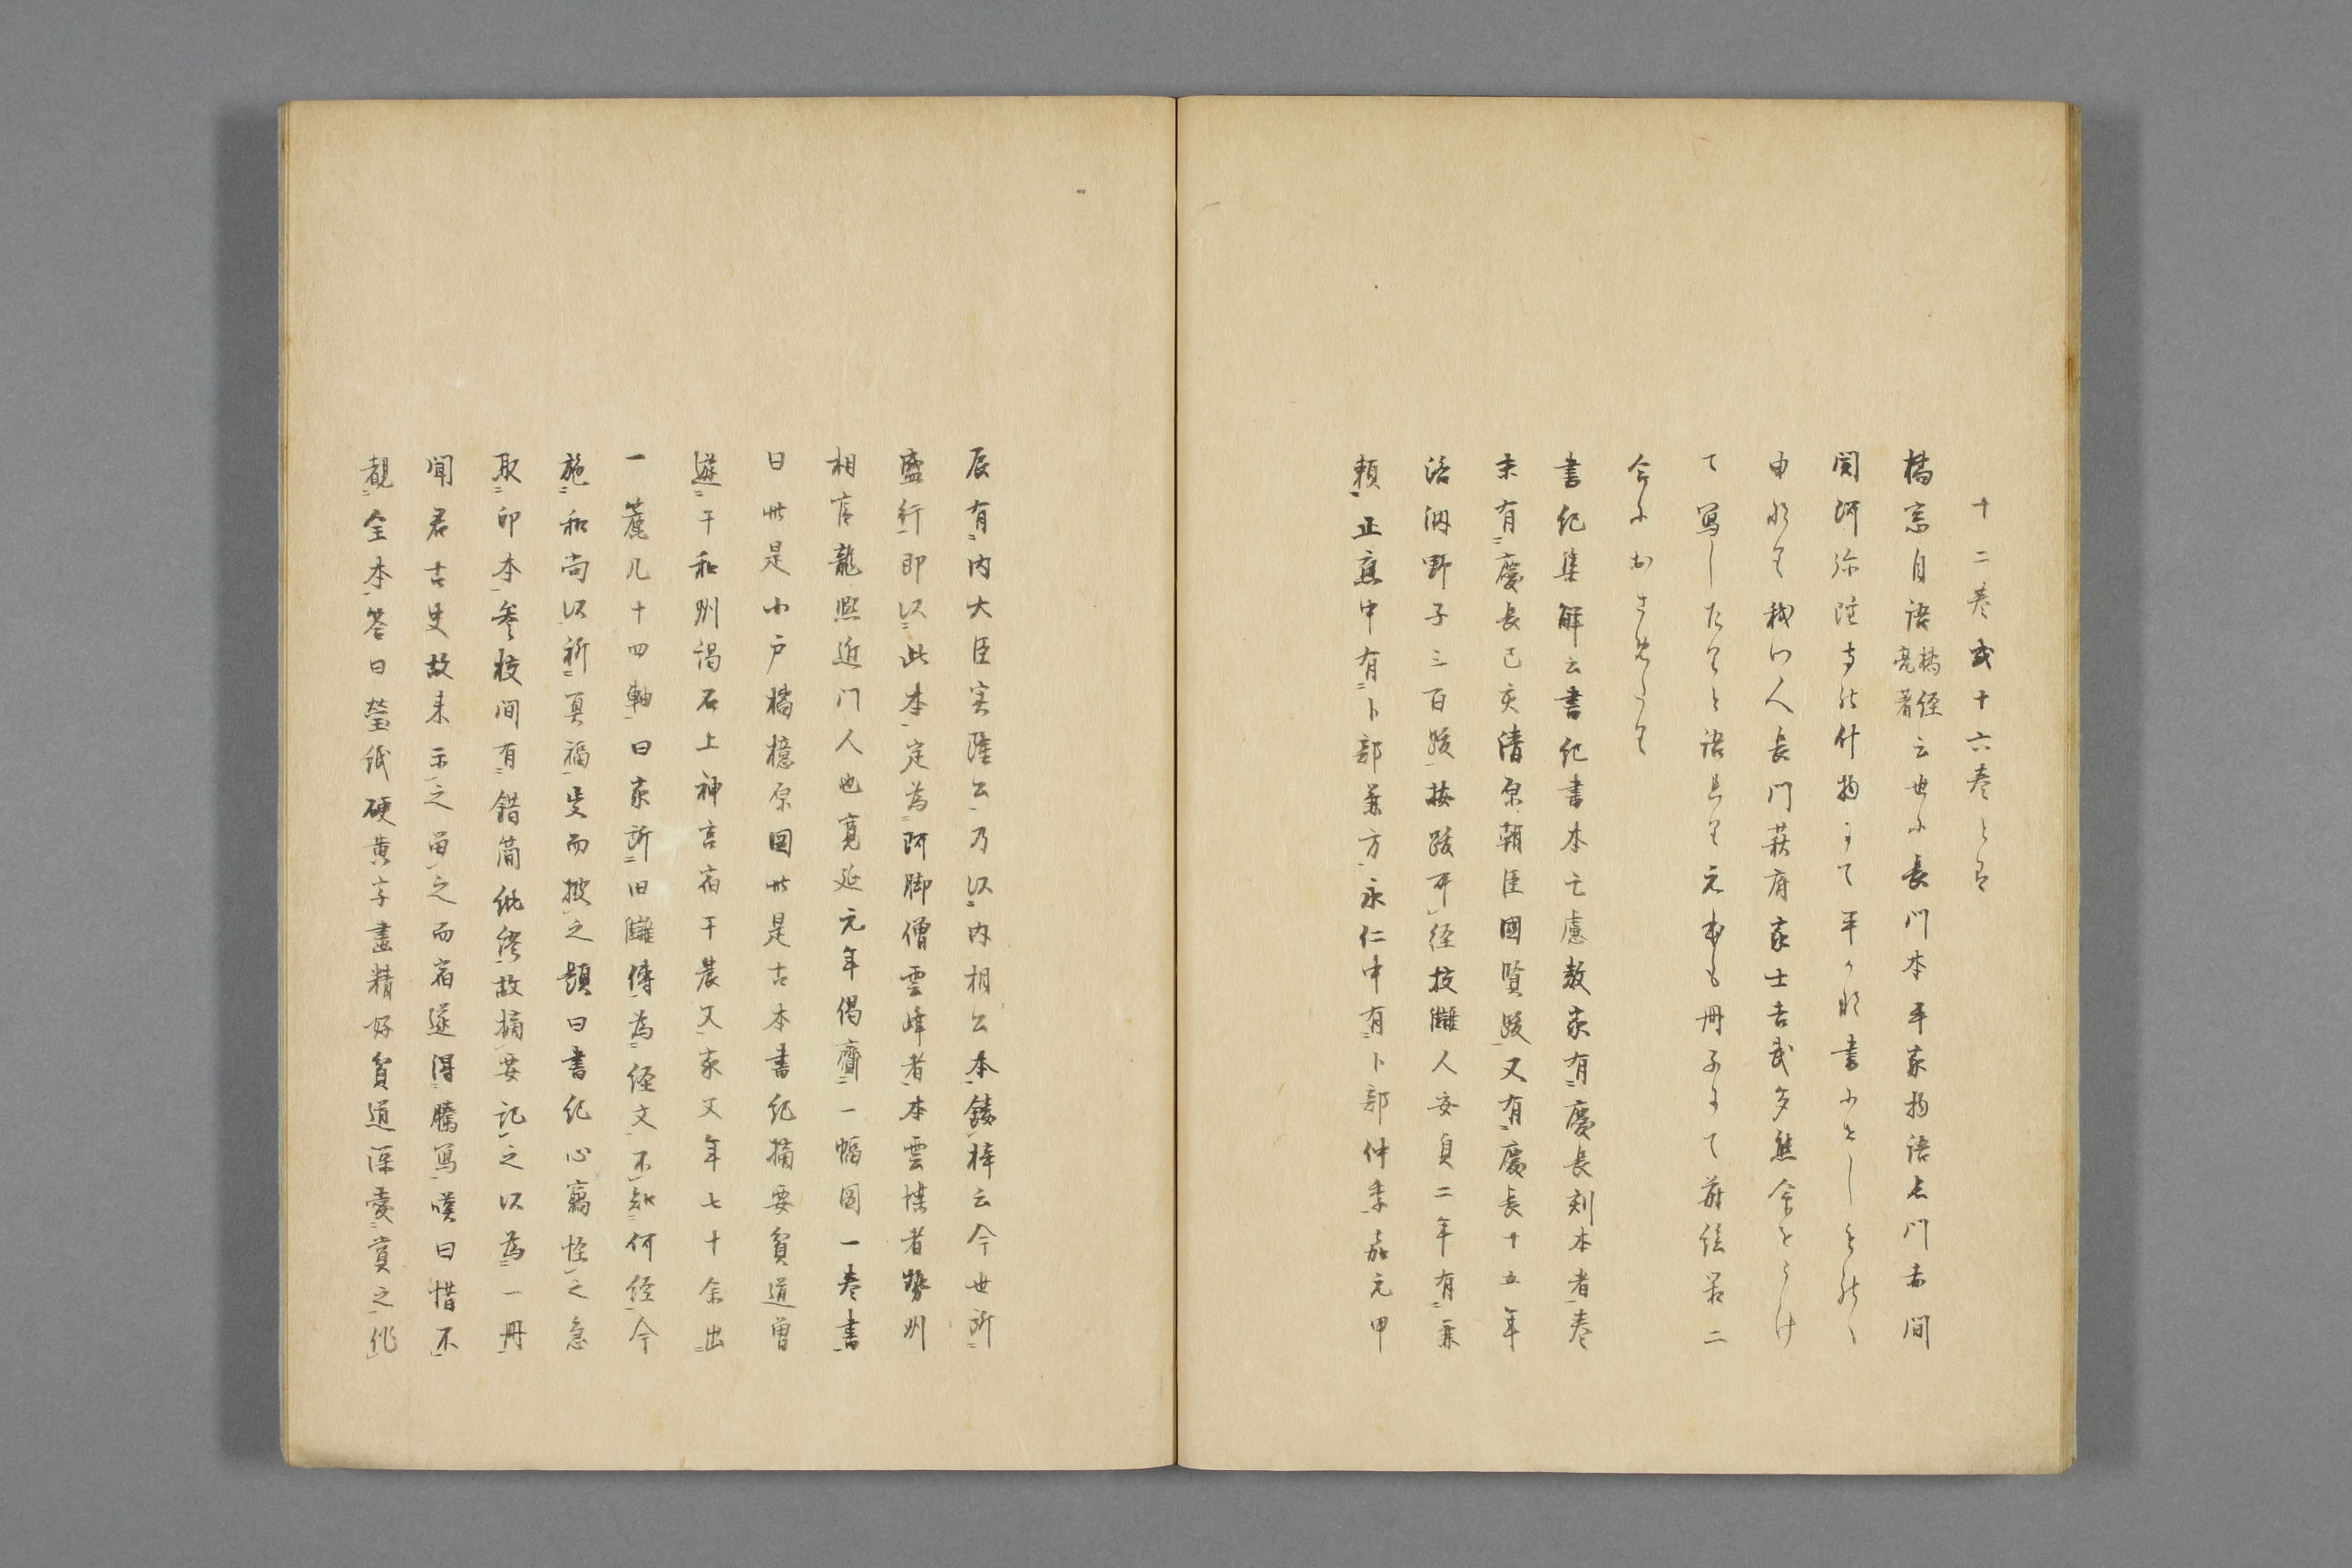 十二巻或十六巻とら
橘窓自語橘経亮著云世に長門本平家物語長門赤間
関阿弥陀寺の什物にて平かな書にせしものゝ
申なり我門人長門萩府家士吉武多熊命をうけ
て写したりと語れり元本も冊子にて葬絵若二
今におさめたり
書紀集解云書紀書本亡慮数家有慶長刻本者巻
末有慶長己亥清原朝臣國賢跋又有慶長十五年
洛汭野子三百跋按跋再経校讎人安貞二年有兼
頼正応中有卜部兼方永仁中有卜部仲季嘉元甲
辰有内大臣実隆公乃以内相公本鏤梓云今世所
盛行即以此本定為阿脚僧雲峰者本雲煤者勢州
相官龍熈近門人也寛延元年偈齎一幅図一巻書
曰此是小戸橘檍原図此是古本書紀摘要貧道曽
遊于和州謁石上神宮宿于農父家父年七十余出
一簏凡十四軸曰家所旧讎傳為経文不知何経今
施和尚以祈冥福受而披之題曰書紀心竊怪之急
取印本参校間有錯簡紕繆故摘要記之以為一冊
聞君古史故来示之留之而宿遂得騰写嘆曰惜不
覩全本答曰瑩紙硬黄字畫精好貧道深愛賞之作